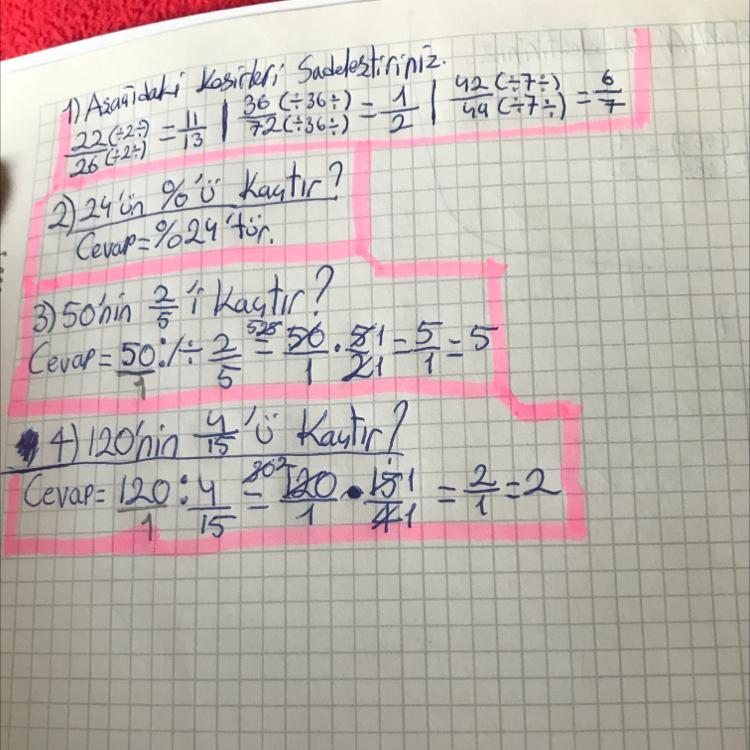 1) Aşağıdaki Kesirleri Sadeleştiriniz.
22(÷2÷)/26(÷2÷) = 11/13 | 36(÷36÷)/72(÷36÷) = 1/2 | 42(÷7÷)/49(÷7÷) = 6/7
2) 24'ün %'ü Kaçtır?
Cevap = %24'tür.
3) 50'nin 2/5'i Kaçtır?
Cevap = 50/1 : / ÷ 2/5 = 50/1 . 51/21 = 5/1 = 5
4) 120'nin 4/15'ü Kaçtır?
Cevap = 120/1 : 4/15 = 120/1 • 151/41 = 2/1 = 2